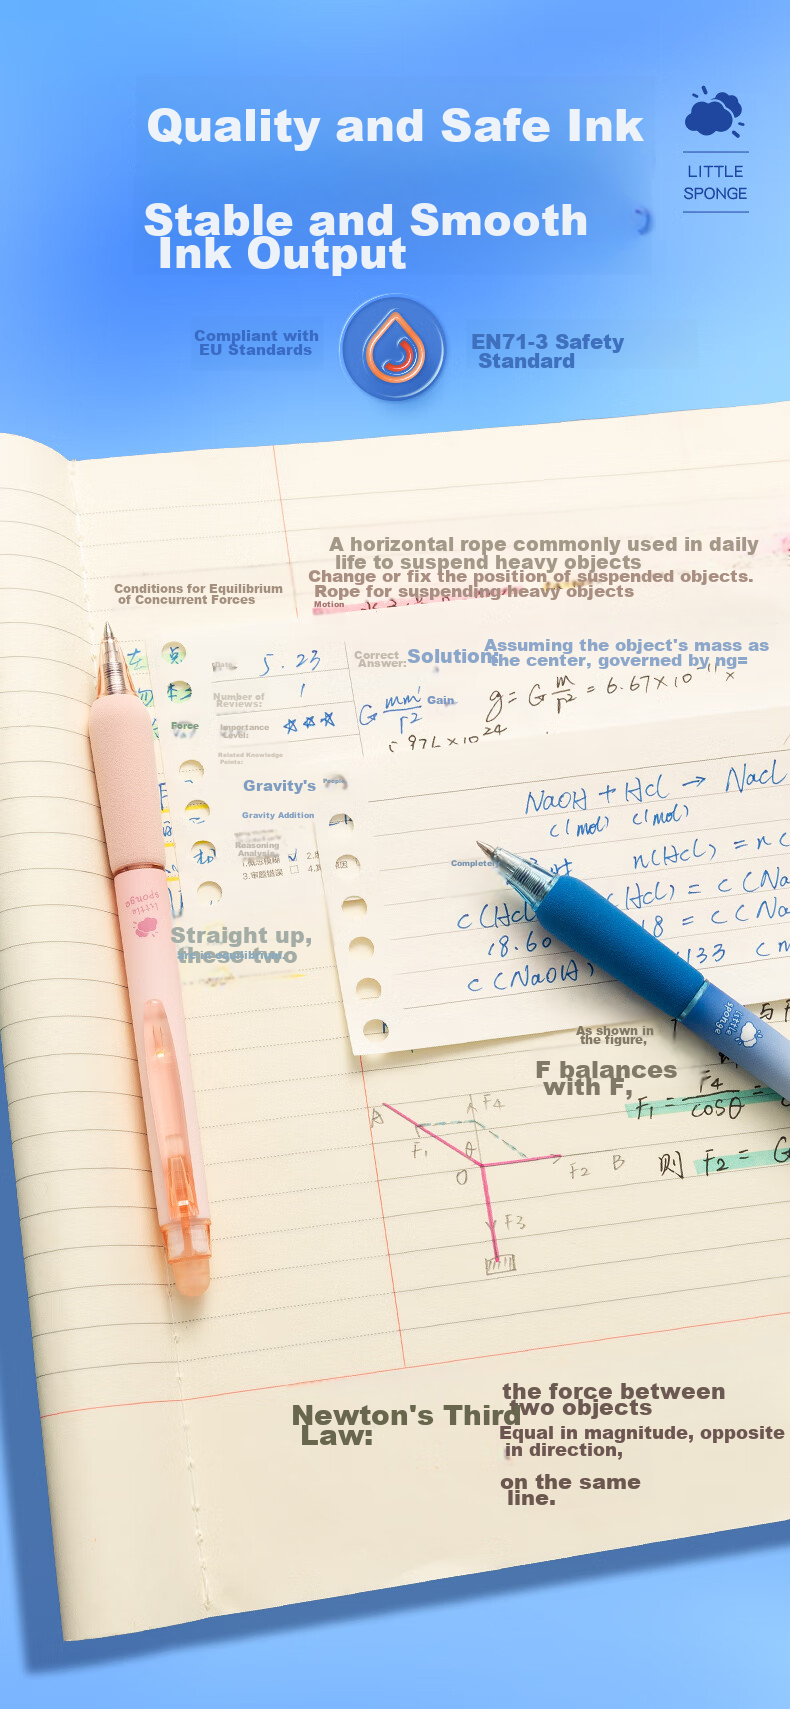 Quality and Safe Ink
LITTLE
SPONGE
Stable and Smooth
Ink Output
Compliant with
EU Standards
EN71-3 Safety
Standard
A horizontal rope commonly used in daily
life to suspend heavy objects
Change or fix the position of suspended objects.
Rope for suspending heavy objects
Motion
Conditions for Equilibrium
of Concurrent Forces
Correct
Answer:
Solution:
Assuming the object's mass as
the center, governed by ng=
5.23
Number of
Reviews:
1
Force
Importance
Level:
☆☆☆
G mm'/r²
Gain
g = G m/r² = 6.67×10⁻¹¹ ×
97L×10²⁴
Related Knowledge
Points:
Gravity's
People
Gravity Addition
Reasoning
Analysis
3.审题错误
NaOH + HCl → NaCl
c(mol) c(mol)
Complete
n(HCl) = n(
c(HCl) = c(Na
18.60
18 = c(Na
c(NaOH)
little
sponge
little
sponge
Straight up,
these two
As shown in
the figure,
F balances
with F,
F₁ = F4/cosθ =
则 F₂ = G
A
F4
F1
θ
O
F2
B
F3
Newton's Third
Law:
the force between
two objects
Equal in magnitude, opposite
in direction,
on the same
line.